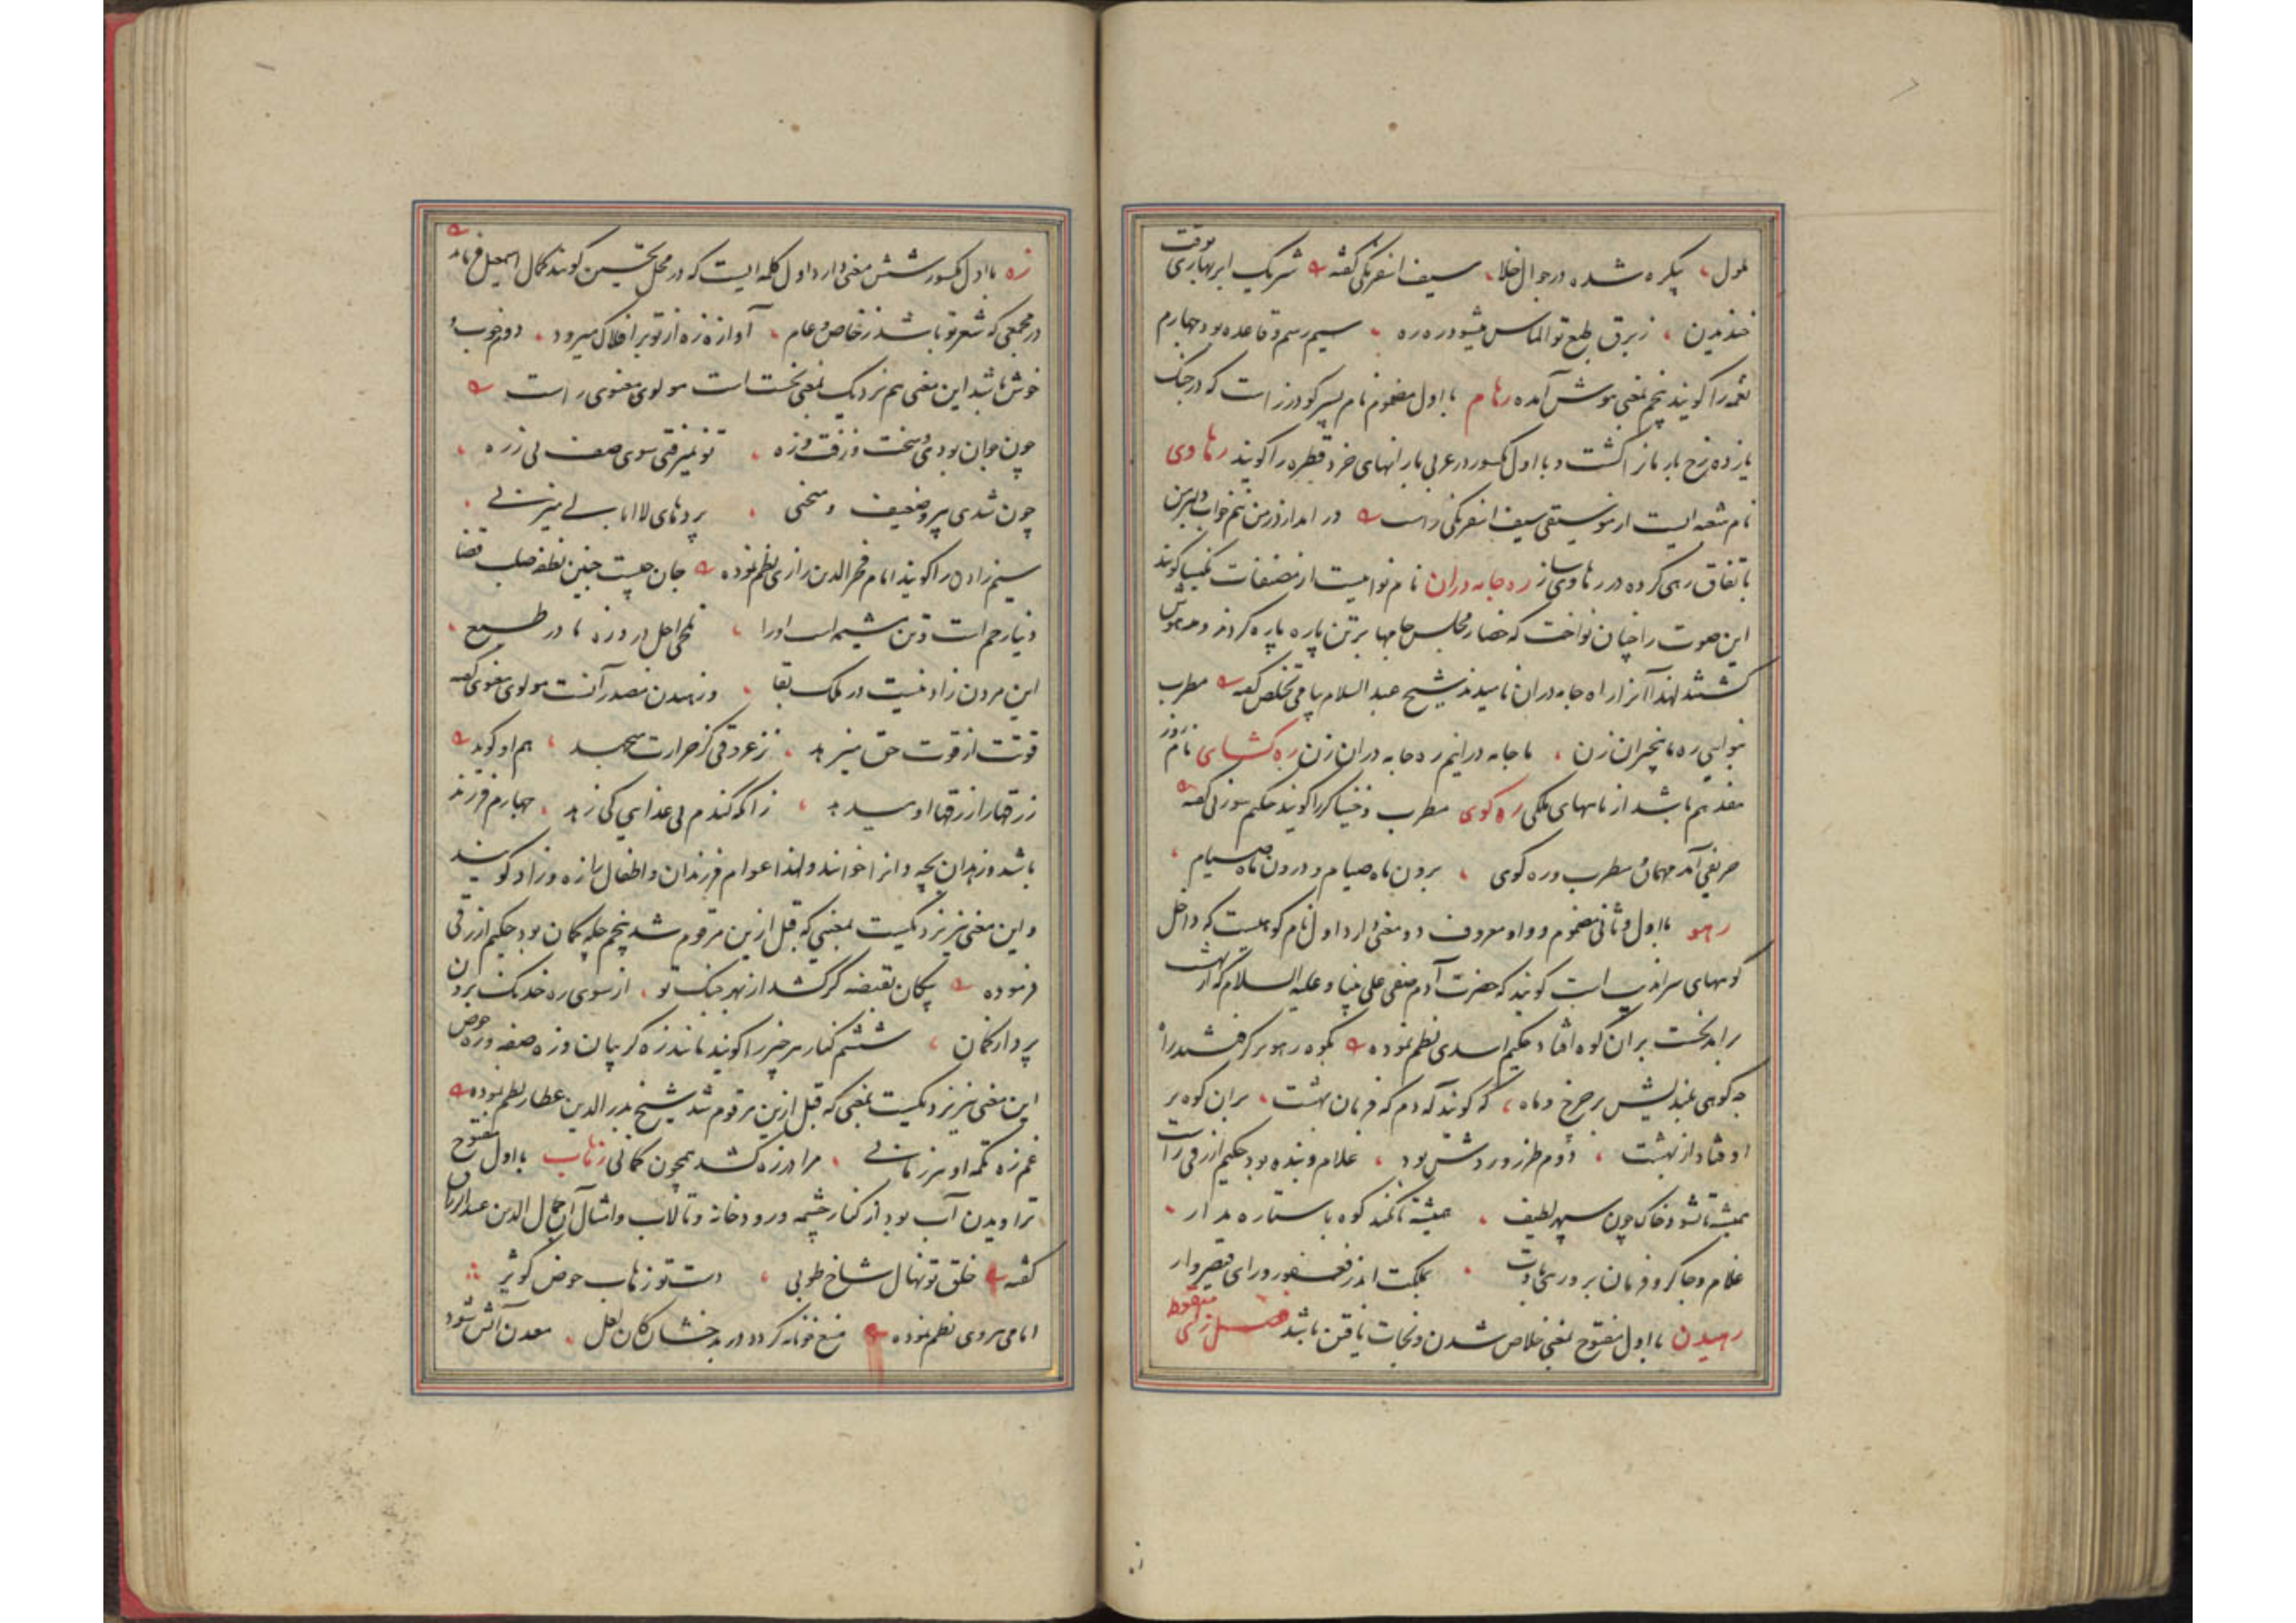 ملول، پیکره شده در جوال خلا، سیف اسفرنکی کفته شریک ابر بهاری بوقت
خندیدن، زبرق طبع تو الماس میشود ره ره سیم رسم و قاعده بود چهارم
نغمه را کویند پنجم بمعنی هوش آمده رهام با اول مضموم نام پسر کودرز است که در جنک
یازده رخ بار باز کشت و با اول مکسور در عربی بارانهای خرد قطره را کویند رهاوی
نام شعبه ایست از موسیقی سیف اسفرنکی راست در
باتفاق رهی کرده در رهاوی ساز ره جامه دران نام نواییست از مصنفات نکیسا کویند
این صوت را چنان نواخت که حضار مجلس جامها بر تن پاره پاره کردند و مدهوش
کشتند لهذا آنرا راه جامه دران نامیدند شیخ عبد السلام پیامی تخلص کفته مطرب
بنوایی ره ما بیخبران زن، ما جامه درانیم ره جامه دران زن ره کشای نام روز
هفدهم باشد از ماههای ملکی ره کوی مطرب و خنیاکر را کویند حکیم سوزنی کفته
حریفی آمد مهمان مطرب و ره کوی، برون ماه صیام و درون ماه صیام،
رهو با اول و ثانی مضموم و واو معروف دو معنی دارد اول نام کوهیست که داخل
کوههای سراندیب است کویند که حضرت آدم صفی علی نبینا و علیه السلام که از بهشت
برآمد نخست بران کوه افتاد حکیم اسدی نظم نموده بکوه رهو بر کرفتند راه
چه کوهی بلندیش بر چرخ و ماه، که کویند آدم که فرمان بهشت، بران کوه بر
اوفتاد از بهشت، دوم طرز و روش بود، غلام و بنده بود حکیم ازرقی راست
همیشه تا نشود خاک چون سپهر لطیف، همیشه تا نکند کوه با ستاره مدار،
غلام و چاکر و فرمان بر و رهی بادت، بملکت اندر فغفور و رای و قیصر وار
رهیدن با اول مفتوح بمعنی خلاص شدن و نجات یافتن باشد فصل زای منقوط
زه با اول مکسور شش معنی دارد اول کلمه ایست که در محل تحسین کویند کمال اسمعیل فرماید
در مجمعی که شعر تو باشد ز خاص و عام، آوازه زه از تو بر افلاک میرود، دوم خوب و
خوش باشد این معنی هم نزدیک بمعنی نخست است مولوی معنوی راست
چون جوان بودی و سخت و زفت و زه، تو نمیرفتی سوی صف بی زره،
چون شدی پیر و ضعیف و منحنی، پردهای لا ابالی میزنی،
سیم زادن را کویند امام فخر الدین رازی نظم نموده جان چیست جنین نطفه صلب قضا
دنیا رحم است و تن مشیمه است او را، تلخی اجل درد زه مادر طبع،
این مردن زادنیست در ملک بقا، و زهیدن مصدر آنست مولوی معنوی کفته
قوتت از قوت حق میزهد، نز عروقی کز حرارت میجهد، هم او کوید
رزقها را رزقها او میدهد، زانکه کندم بی غذایی کی زهد، چهارم فرزند
باشد و زهدان بچه دان را خوانند و لهذا عوام فرزندان و اطفال را زه و زاد کویند
و این معنی نیز نزدیکست بمعنیی که قبل ازین مرقوم شد پنجم چله کمان بود حکیم ازرقی
فرموده پیکان بقبضه کر کشد از بهر جنک تو، از سوی ره خدنک برون
پرد از کمان، ششم کنار هر چیز را کویند مانند زه کریبان و زه صفه و زه حوض
این معنی نیز نزدیکست بمعنی که قبل ازین مرقوم شد شیخ فرید الدین عطار نظم نموده
غم زه تکمه او هر زمانی، مرا در زه کشد همچون کمانی زهاب با اول مفتوح
تراویدن آب بود از کنار چشمه و رودخانه و تالاب و امثال آن جمال الدین عبد الرزاق
کفته خلق تو نهال شاخ طوبی، دست تو زهاب حوض کوثر
امامی هروی نظم نموده کردد در بدخشان کان لعل، معدن آتش شود